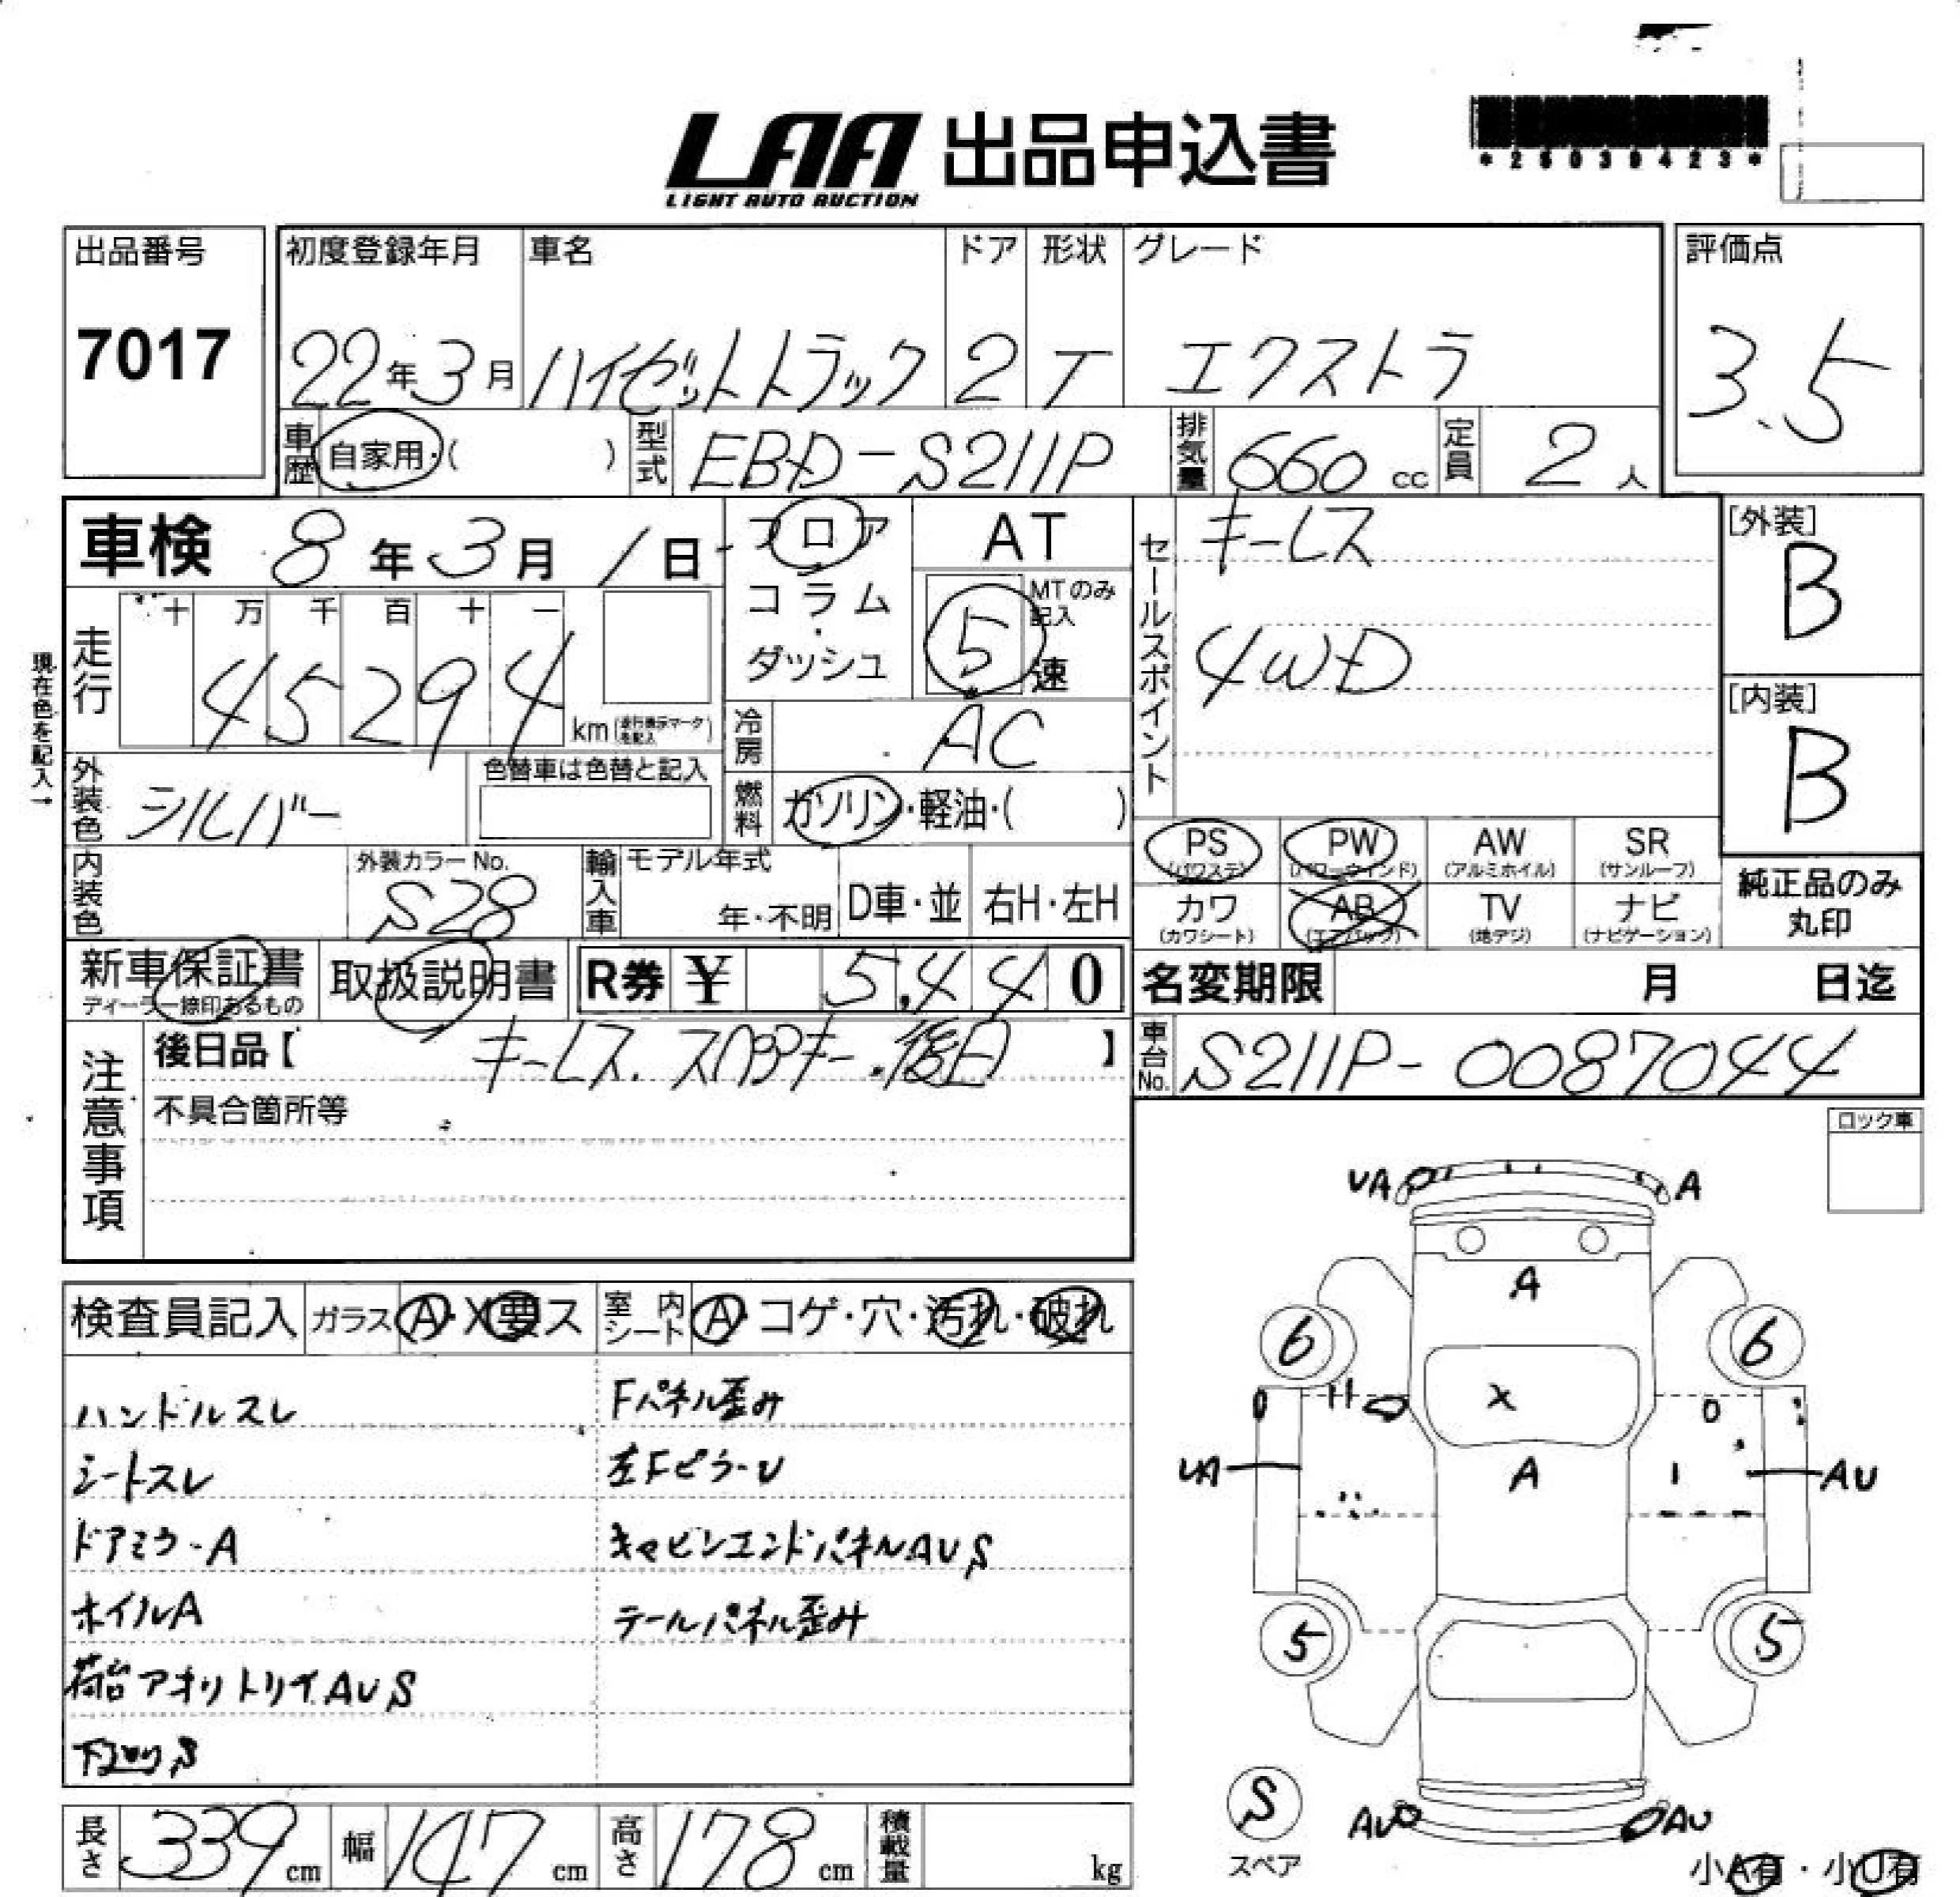 LAA 出品申込書
LIGHT AUTO AUCTION
*25030423*
出品番号
7017
初度登録年月 車名 ドア 形状 グレード
22年3月 ハイゼットトラック 2 T エクストラ
評価点
3.5
車歴 自家用・( ) 型式 EBD-S211P 排気量 660cc 定員 2人
車検 8年3月1日
フロア
コラム
・
ダッシュ
AT
MTのみ記入
5速
走行
十 万 千 百 十 一
45294
km(走行表示マークを記入)
現在色を記入→
外装色 シルバー
色替車は色替と記入
冷房 AC
燃料 ガソリン・軽油・( )
セールスポイント
キーレス
4WD
[外装]
B
[内装]
B
内装色
外装カラーNo.
S28
輸入車 モデル年式
年・不明 D車・並 右H・左H
PS (パワステ) PW (パワーウインド) AW (アルミホイル) SR (サンルーフ)
カワ (カワシート) AB (エアバック) TV (地デジ) ナビ (ナビゲーション)
純正品のみ
丸印
新車保証書
ディーラー捺印あるもの
取扱説明書
R券 ¥ 5,440
名変期限 月 日迄
注意事項
後日品【キーレス.スペアキー.後日】
不具合箇所等
車台No. S211P-0087044
ロック車
検査員記入 ガラス A・X要ス 室内シート A・コゲ・穴・汚れ・破れ
ハンドルスレ
シートスレ
ドアミラーA
ホイルA
荷台アオリトリイAUS
下廻りS
Fパネル歪み
左FピラーU
キャビンエンドパネルAUS
テールパネル歪み
UA A
A
6 6
X
UA A AU
5 5
S
スペア
AU AU
小A有・小U有
長さ 339cm 幅 147cm 高さ 178cm 積載量 kg